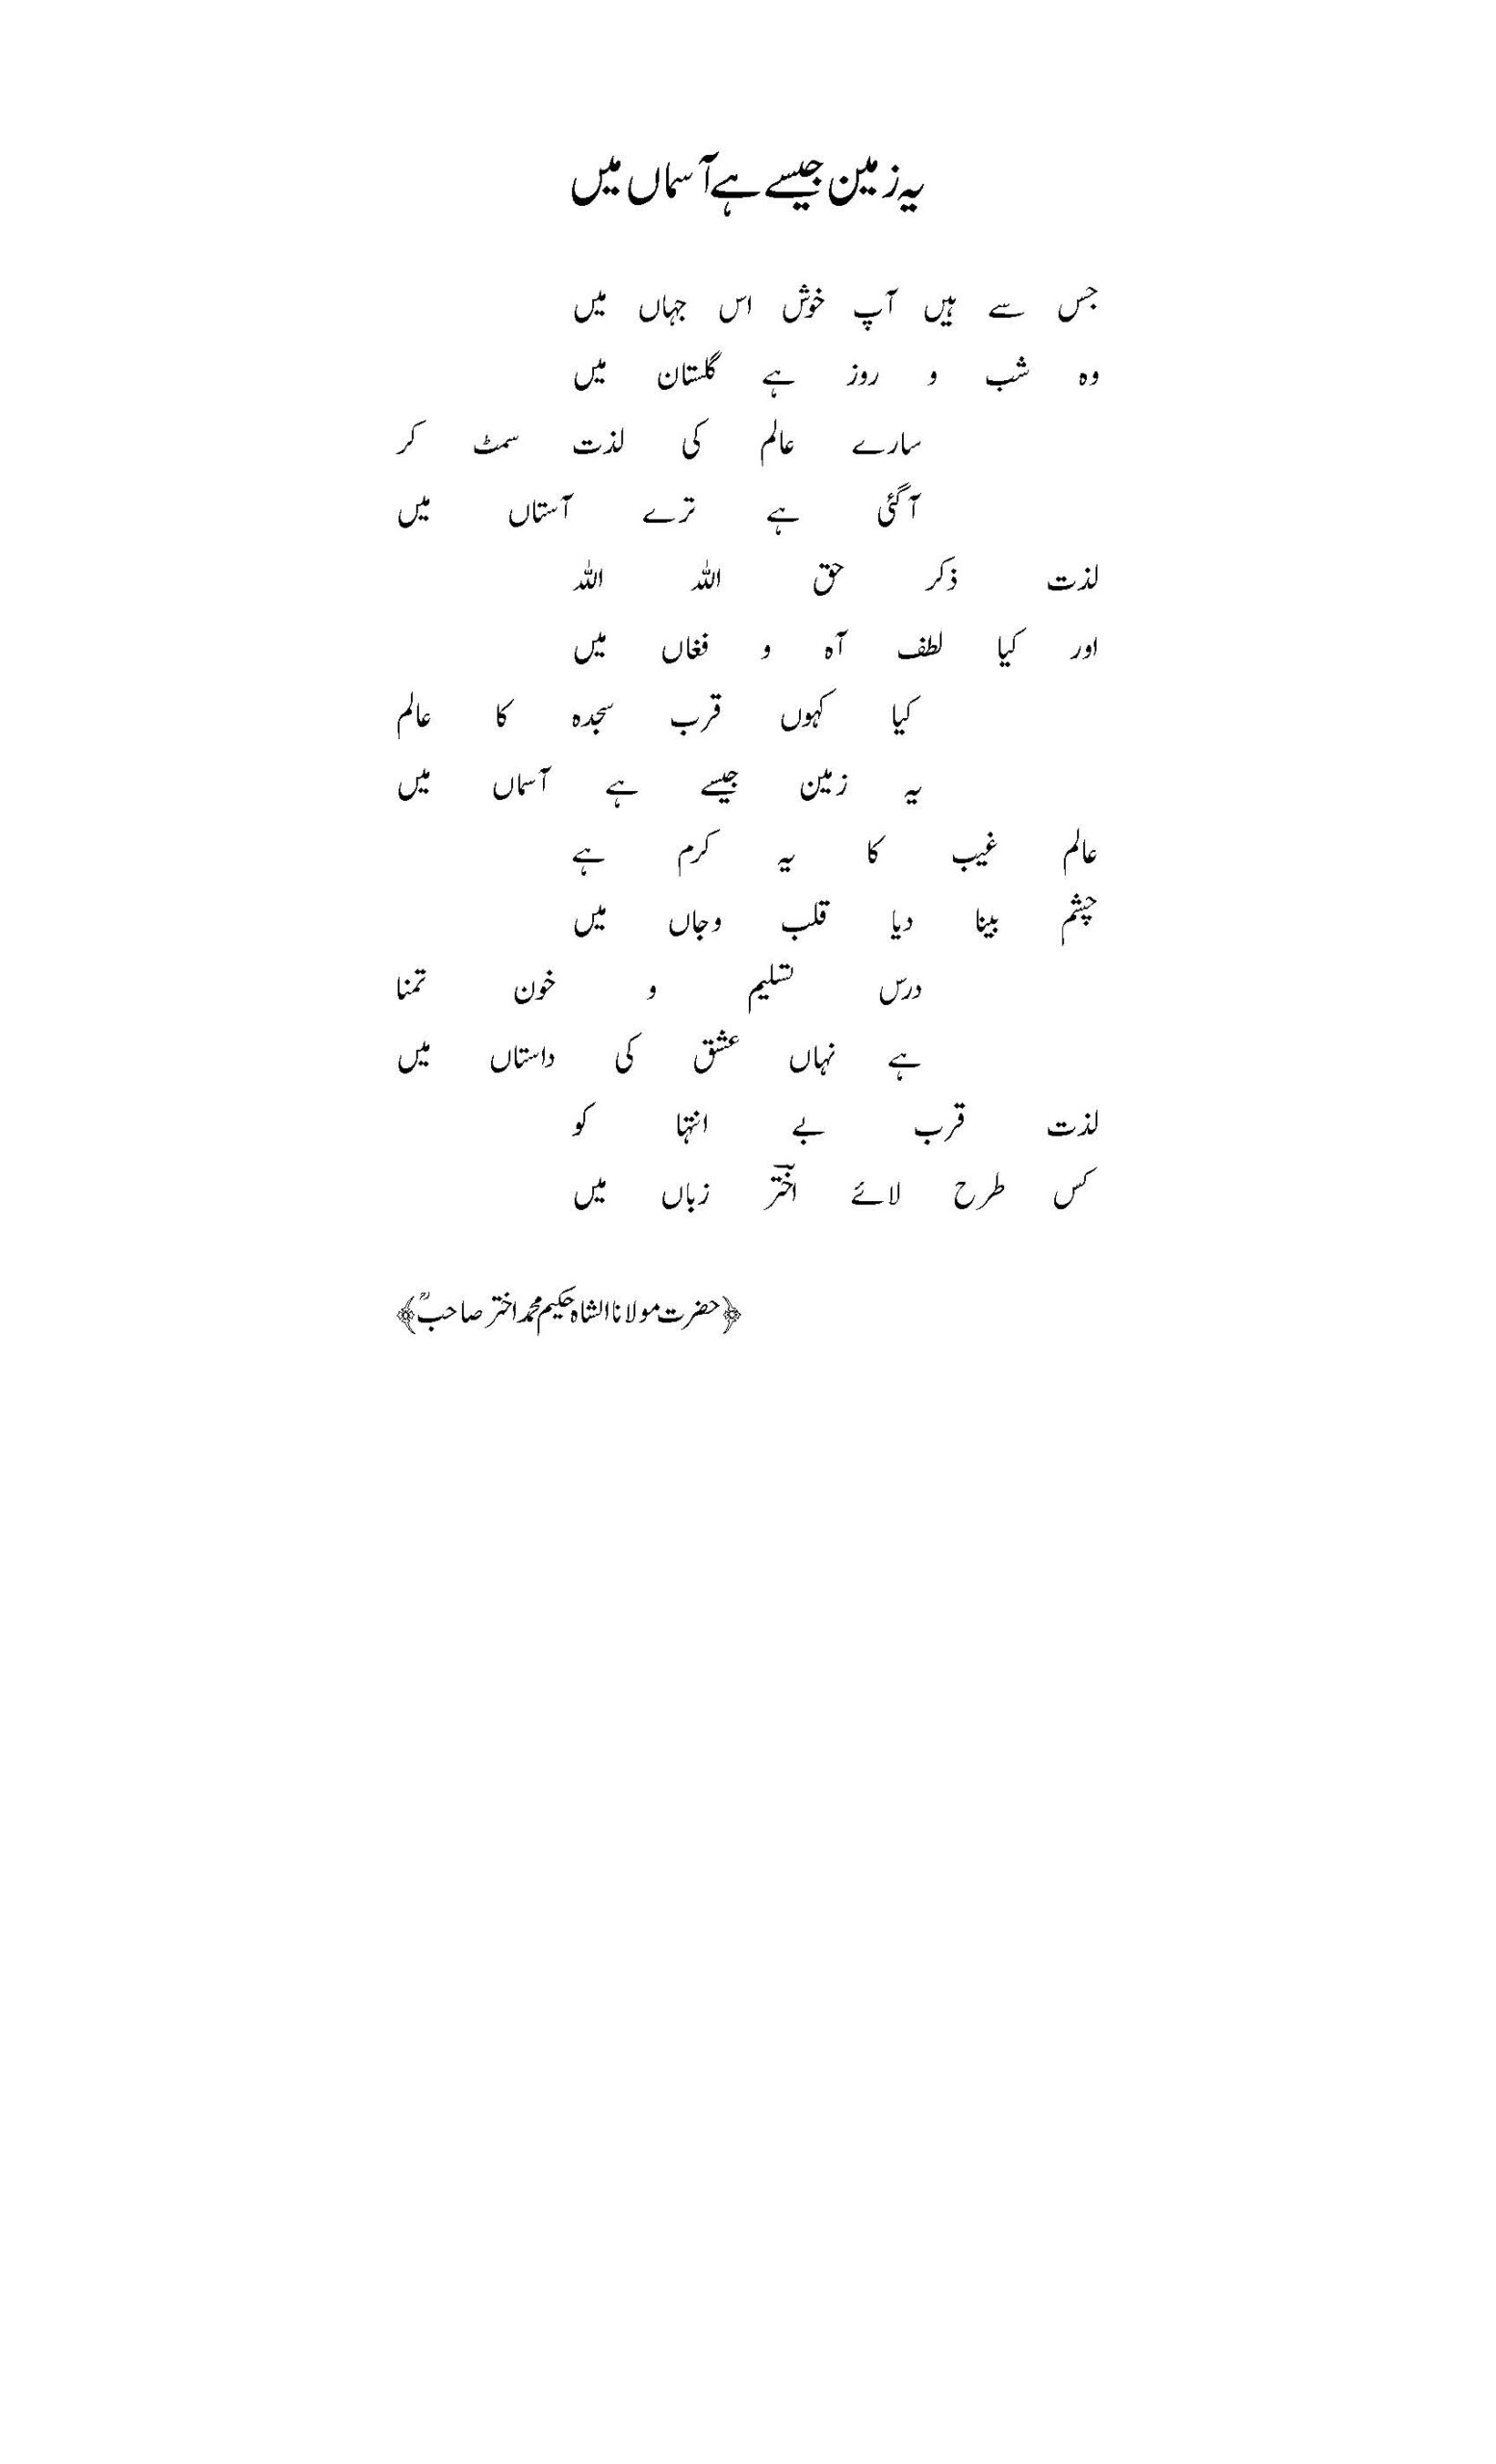 یہ زمین جیسے ہے آسماں میں
جس سے ہیں آپ خوش اس جہاں میں
وہ شب و روز ہے گلستان میں
سارے عالم کی لذت سمٹ کر
آگئی ہے ترے آستاں میں
لذت ذکر حق اللہ اللہ
اور کیا لطف آہ و فغاں میں
کیا کہوں قرب سجدہ کا عالم
یہ زمین جیسے ہے آسماں میں
عالم غیب کا یہ کرم ہے
چشم بینا دیا قلب وجاں میں
درس تسلیم و خون تمنا
ہے نہاں عشق کی داستاں میں
لذت قرب بے انتہا کو
کس طرح لائے اخترؔ زباں میں
﴿حضرت مولانا الشاہ حکیم محمد اختر صاحبؒ﴾